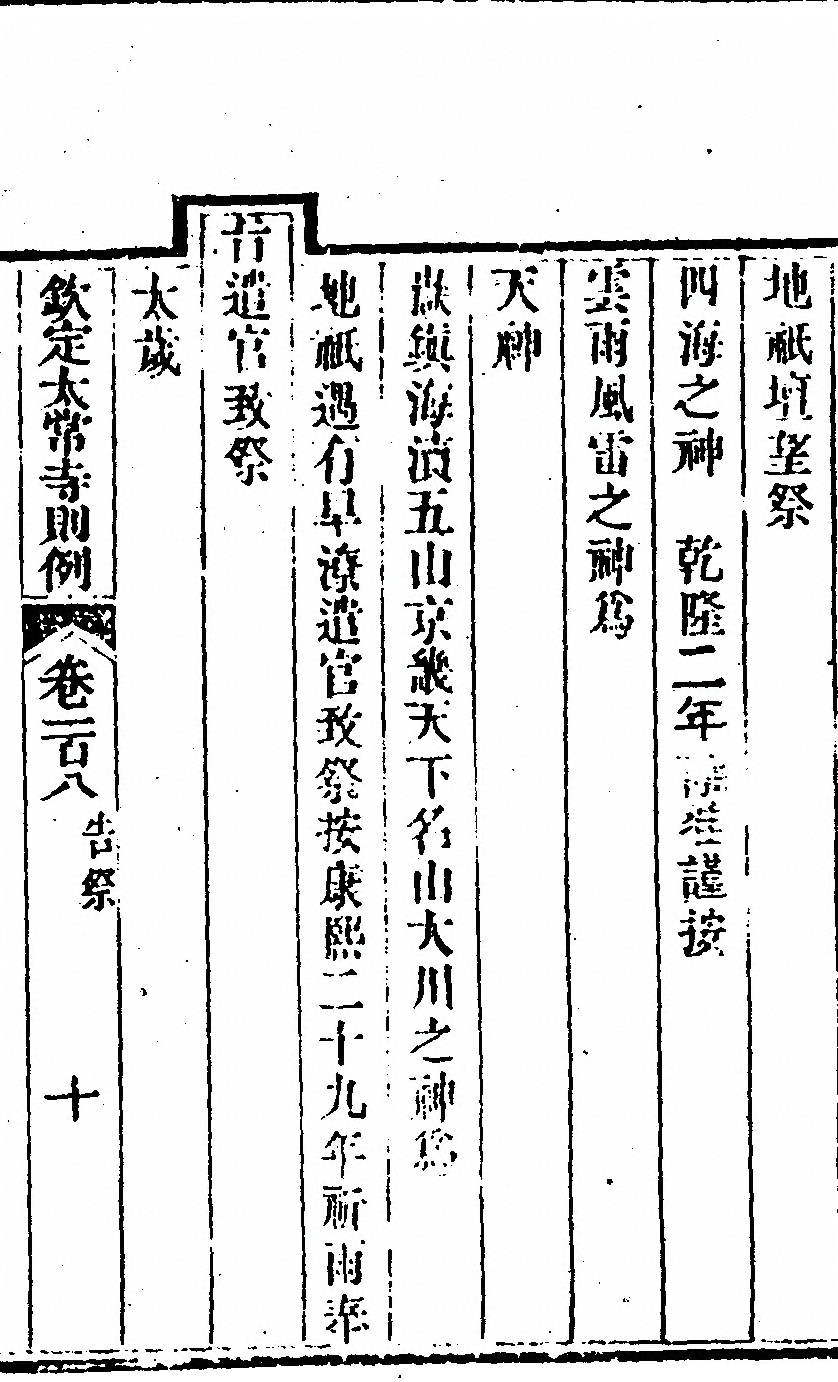 地祇壇望祭
四海之神 乾隆二年謹按
雲雨風雷之神爲
天神
嶽鎮海瀆五山京畿天下名山大川之神爲
地祇遇有旱潦遣官致祭按康熙二十九年祈雨奉
旨遣官致祭
太歲
欽定太常寺則例 卷一百八 告祭 十